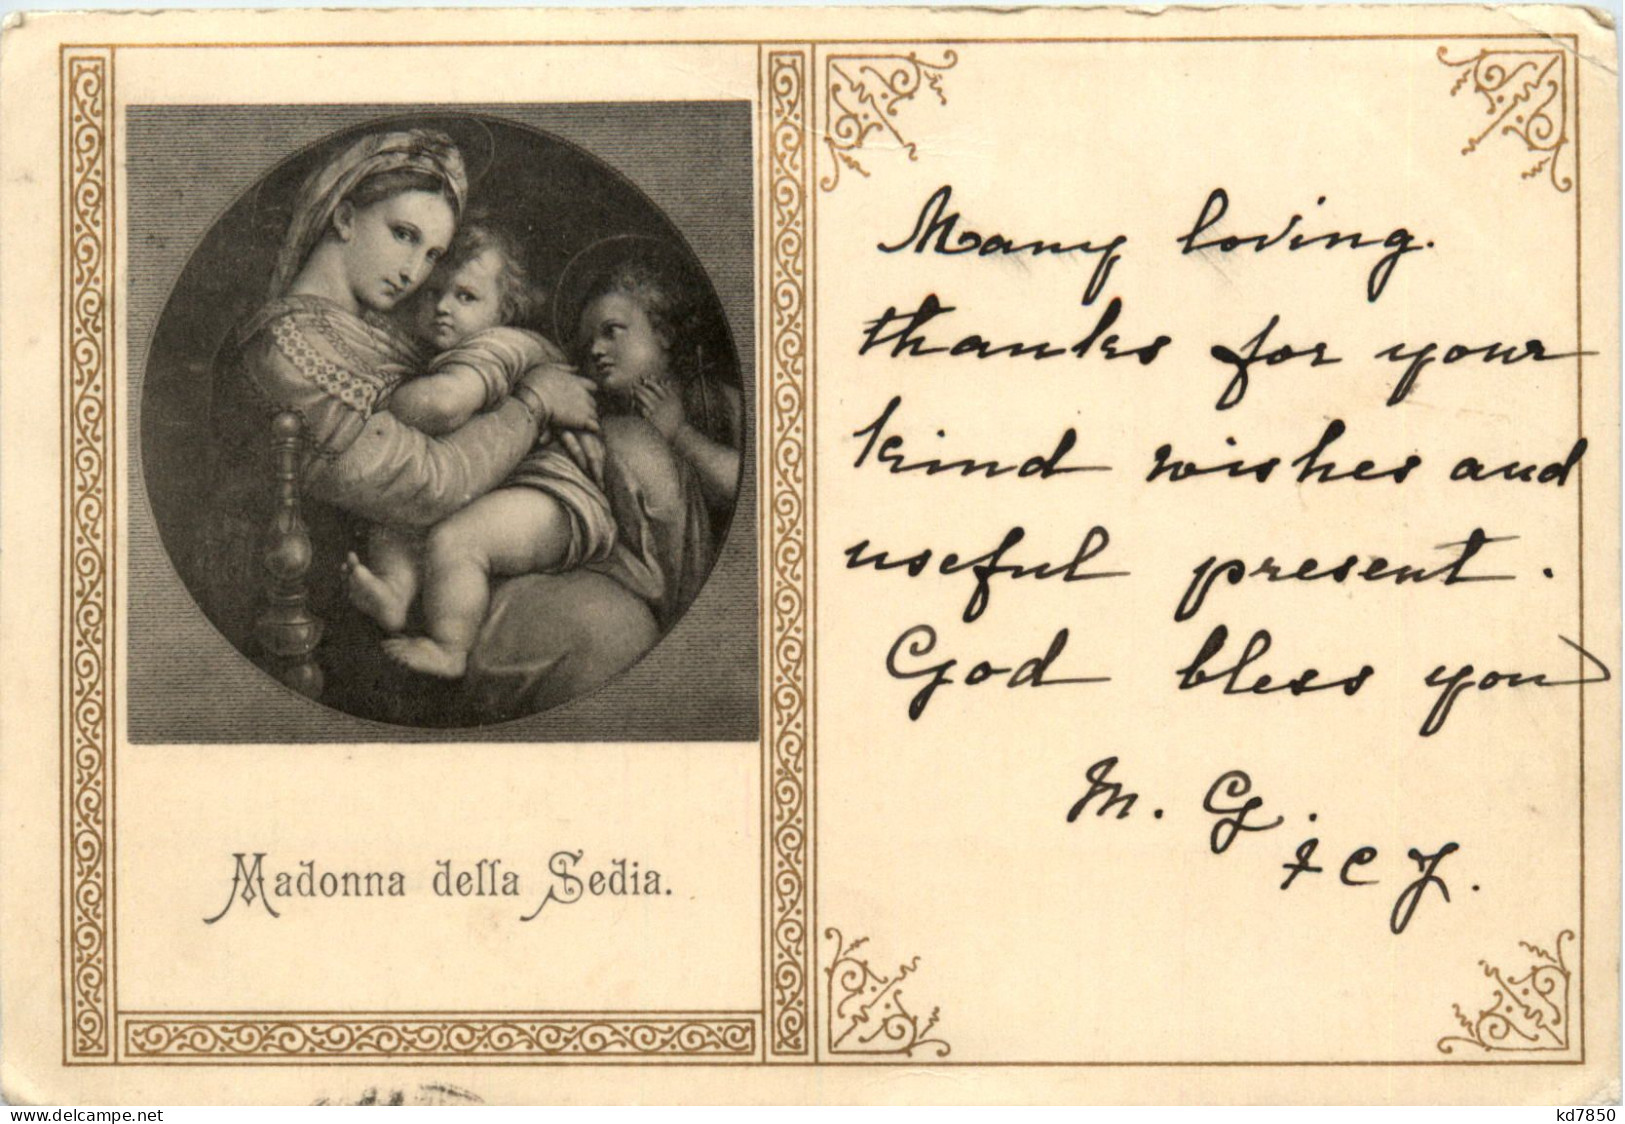 Madonna della Sedia.
Many loving.
thanks for your
kind wishes and
useful present.
God bless you
M. G.
I C J.
www.delcampe.net
kd7850